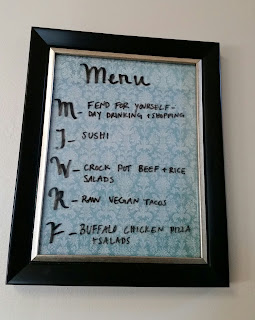 Menu
M - FEND FOR YOURSELF -
DAY DRINKING + SHOPPING
T - SUSHI
W - CROCK POT BEEF + RICE
SALADS
R - RAW VEGAN TACOS
F - BUFFALO CHICKEN PIZZA
+ SALADS